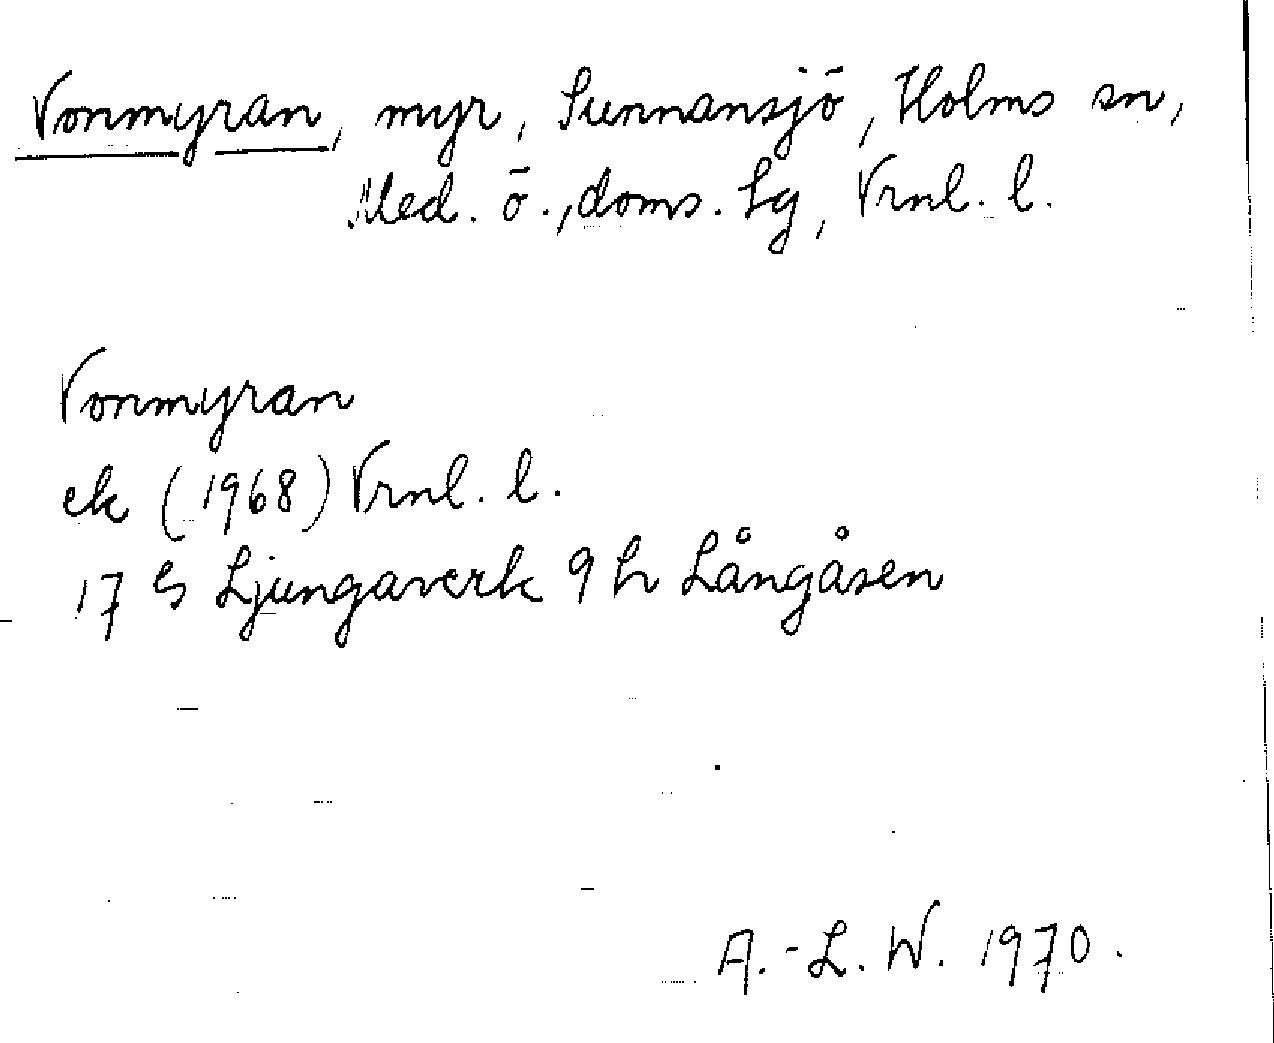 Vonmyran, myr, Sunnansjö, Holms sn,
Med. ö., doms. Lg, Vrnl. l.
Vonmyran
ek (1968) Vrnl. l.
17 G Ljungaverk 9 h Långåsen
A.-L. W. 1970.